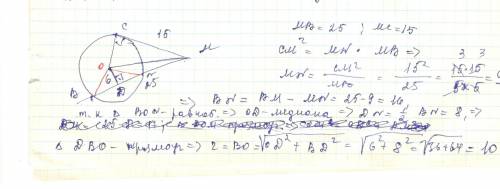 C
15
M
O
6
D
N
25
B
MB = 25 ; MC = 15
CM² = MN · MB =>
MN = CM²/MB = 15²/25 = 15·15/5·5 = 9
3 3
=> BN = BM - MN = 25 - 9 = 16
т.к. в BON - равноб => OD - медиана => DN = 1/2 BN = 8, =>
в DBO - прямоуг => r = BO = √OD² + BD² = √6² + 8² = √36+64 = 10